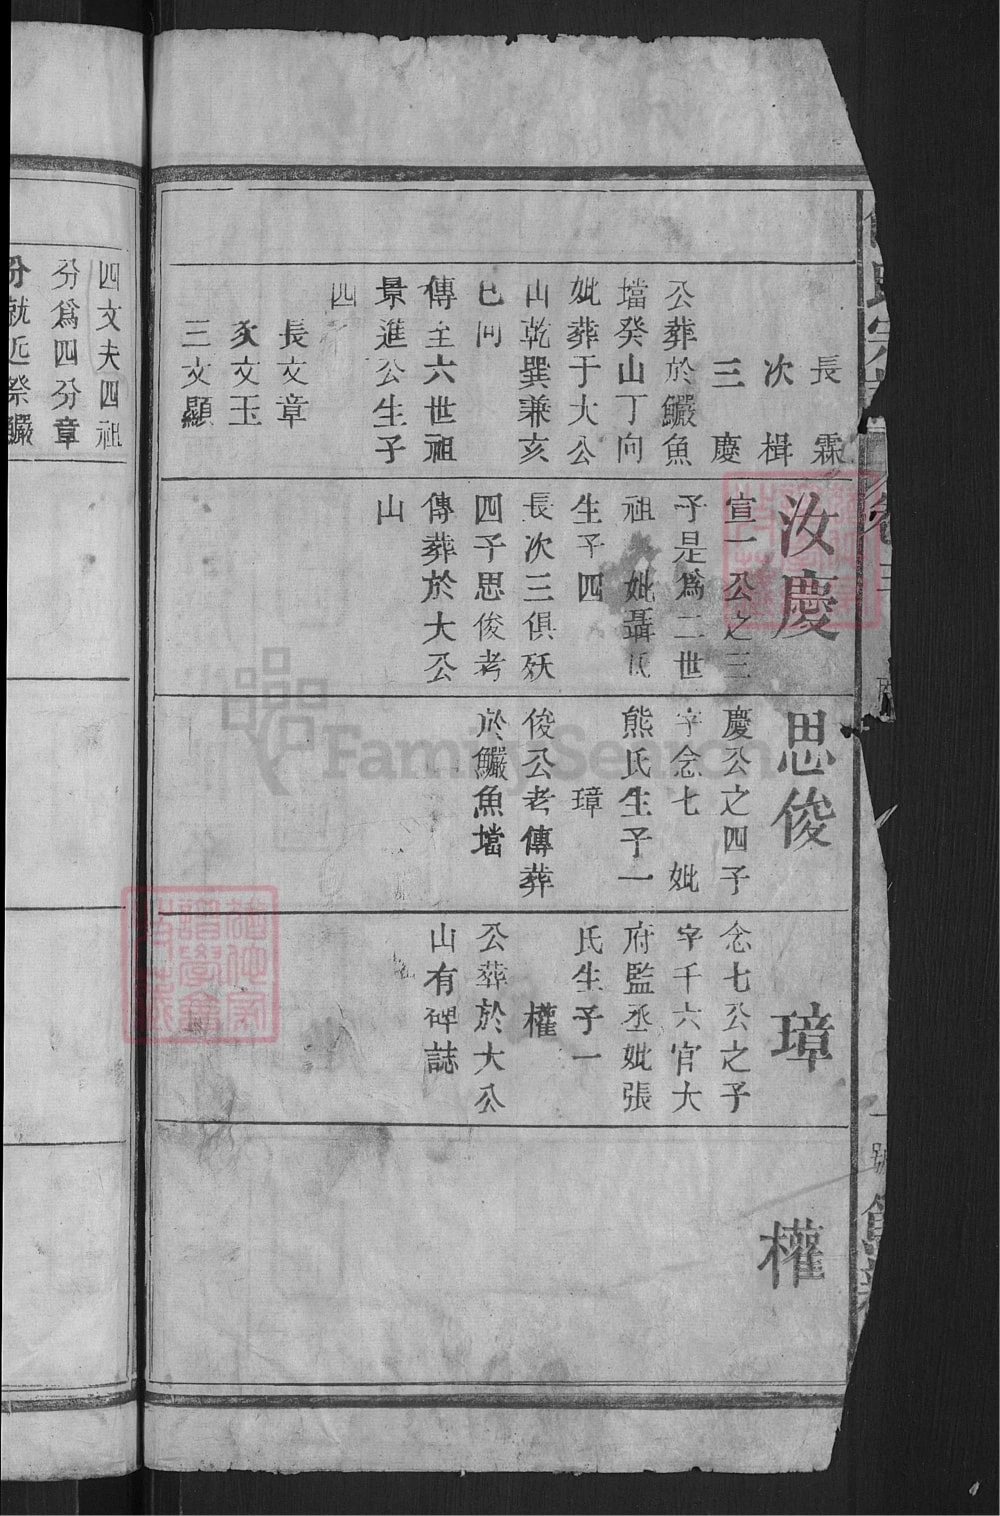 長霖
次楫
三慶
公葬於鱺魚
壋癸山丁向
妣葬于大公
山乾巽兼亥
巳向
傳至六世祖
景進公生子
四
長文章
次文玉
三文顯
汝慶
宣一公之三
子是爲二世
祖 妣聶氏
生子四
長次三俱殀
四子思俊考
傳葬於大公
山
思俊
慶公之四子
字念七 妣
熊氏生子一
璋
俊公考傳葬
於鱺魚壋
璋
念七公之子
字千六官大
府監丞妣張
氏生子一
權
公葬於大公
山有碑誌
權
四文夫四祖
分爲四分章
分就近祭鱺
FamilySearch